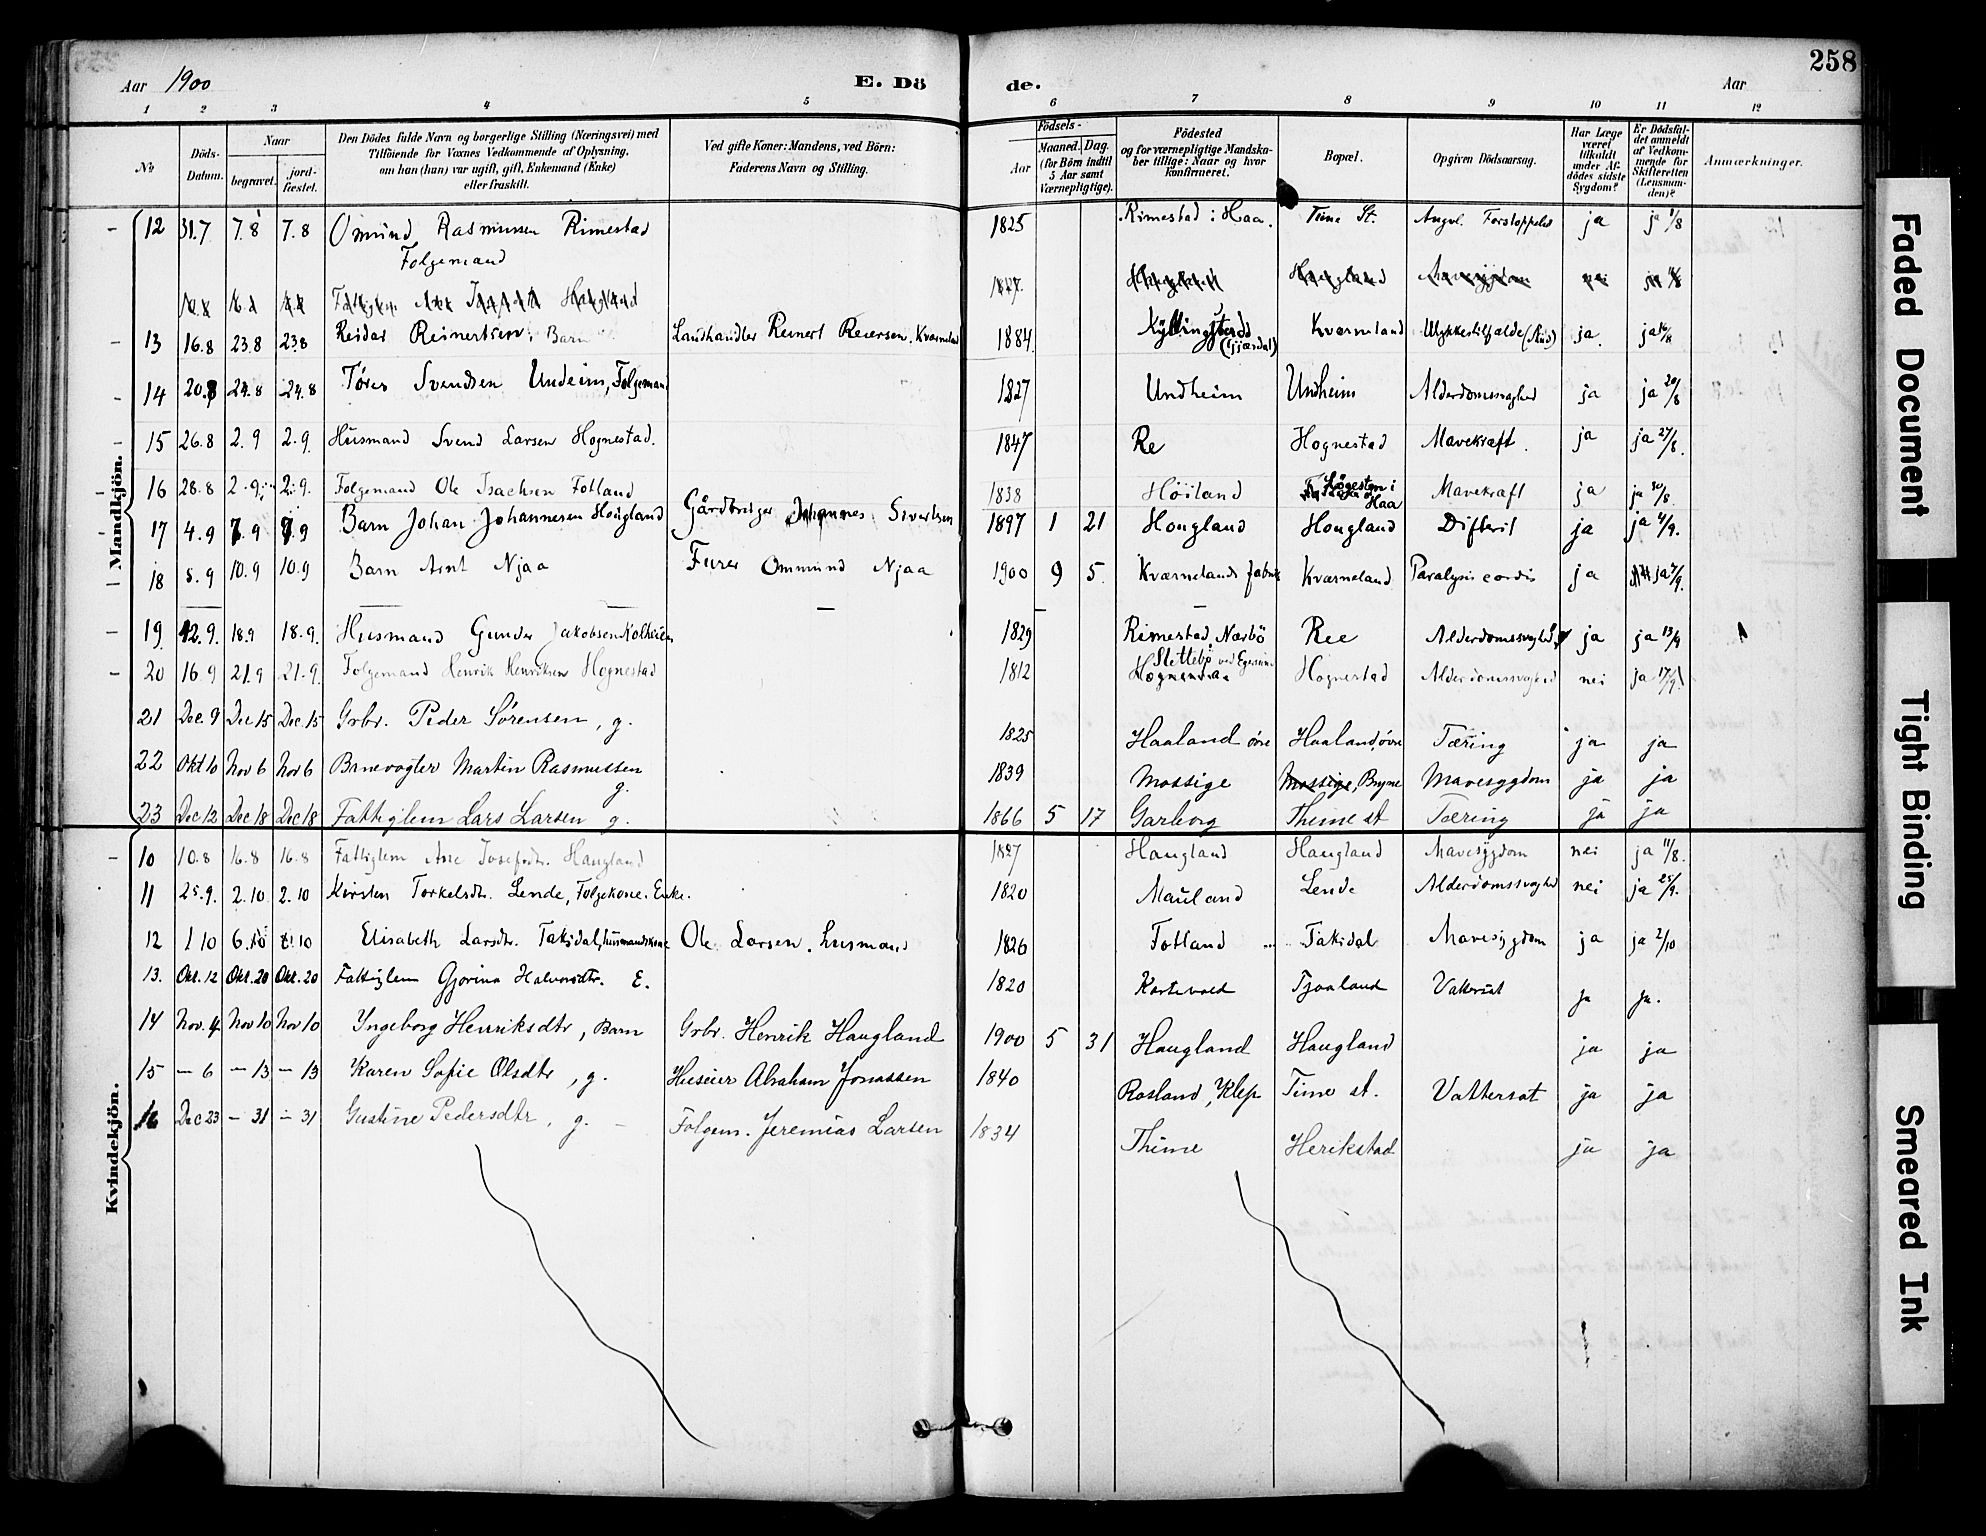 258
Aar 1900 E. Dö de. Aar
1 2 3 4 5 6 7 8 9 10 11 12
No
Döds-Datum.
Naar
begravet.
jord-fæstet.
Den Dödes fulde Navn og borgerlige Stilling (Næringsvei) med
Tilföiende for Voxnes Vedkommende af Oplysning.
om han (han) var ugift, gift, Enkemand (Enke)
eller fraskilt.
Ved gifte Koner: Mandens, ved Börn:
Faderens Navn og Stilling.
Födsels-
Aar
Maaned. Dag.
(for Börn indtil
5 Aar samt
Værnepligtige).
Födested
og for værnepligtige Mandska-
ber tillige: Naar og hvor
konfirmeret.
Bopæl.
Opgiven Dödsaarsag.
Har Læge
været
tilkaldt
under Af-
dödes sidste
Sygdom?
Er Dödsfal-
det anmeldt
af Vedkom-
mende for
Skifteretten
(Lensman-
den)?
Anmærkninger.
Mandkjön.
12 31.7 7.8 7.8 Omund Rasmussen Rimestad 1825 Rimestad i Haa. Time St. Forstoppelse ja ja 1/8
Folgemand
13 16.8 23.8 23.8 Reidar Reinertsen, Barn Landhandler Reinert Reiersen, Kvernelad 1884 Kyllingstad (Gjæsdal) Kværneland Ulykkestilfælde ja. ja 16/8
14 20.8 24.8 24.8 Tøres Svendsen Undeim, Folgemand 1827 Undheim Undheim Alderdomssvaghed ja ja 20/8
15 26.8 2.9 2.9. Husmand Svend Larsen Hognestad. 1847 Re Hognestad Mavekræft. ja ja 27/8.
16 28.8 2.9. 2.9. Folgemand Ole Isachsen Fotland 1838 Höiland Haa Mavekræft ja ja 30/8.
17 4.9 7.9 7.9 Barn Johan Johannesen Hougland Gårdbruger Johannes Sivertsen 1897 1 21 Hougland Hougland Difterit ja ja 4/9.
18 5.9 10.9 10.9 Barn Arnt Njaa Ommund Njaa 1900 9 5. Kværnelands fabrik Kværneland Paralysis cordis ja ja 7/9.
19 12.9. 18.9 18.9. Husmand Gunder Jakobsen 1829 Rimestad, Nærbö Ree Alderdomssvaghed ja ja 13/9
20 16.9 21.9 21.9. Folgemand Henrik Henriksen Hognestad 1812 Slettebö ved Hognestad Alderdomssvaghed nei ja 17/9.
21 Dec. 9 Dec 15 Dec. 15 Grbr. Peder Sörensen, g. 1825 Haaland övre Haaland, övre Tæring ja ja
22 Okt 10 Nov 6 Nov 6 Banevogter Martin Rasmussen g. 1839 Mossige Mossige, Bryne Mavesygdom ja ja
23 Dec 12 Dec 18 Dec 18 Fattiglem Lars Larsen g. 1866 5 17 Garborg Thime st Tæring ja ja
Kvindekjön.
10 10.8 16.8 16.8 Fattiglem Ane Josefsdtr. Haugland 1827 Haugland Haugland Mavesygdom nei ja 11/8.
11 25.9. 2.10 2.10 Kirsten Torkelsdtr. Lende, Folgekone. Enke. 1820 Mauland Lende Alderdomssvaghed nei ja 25/9.
12 1.10 6.10 6.10 Elisabeth Larsdtr. Taksdal, husmandskone Ole Larsen, husmand 1826 Fotland Taksdal Mavesygdom ja ja 2/10
13. Okt. 12 Okt. 20 Okt. 20 Fattiglem Gjorina Halvorsdtr. E. 1820 Kartevold Tjaaland Vattersot ja ja.
14 Nov. 4 Nov 10 Nov 10 Yngeborg Henriksdtr, Barn Grbr. Henrik Haugland 1900 5 31 Haugland Haugland ja ja
15 – 6 – 13 – 13 Karen Sofie Olsdtr, g. Huseier Abraham Jonassen 1840 Rosland, Klep Time st. Vattersot ja ja
16 Dec 23 – 31 – 31 Gustine Pedersdtr, g. – Folgem. Jeremias Larsen 1834 Thime Herikstad ja ja
Faded Document
Tight Binding
Smeared Ink